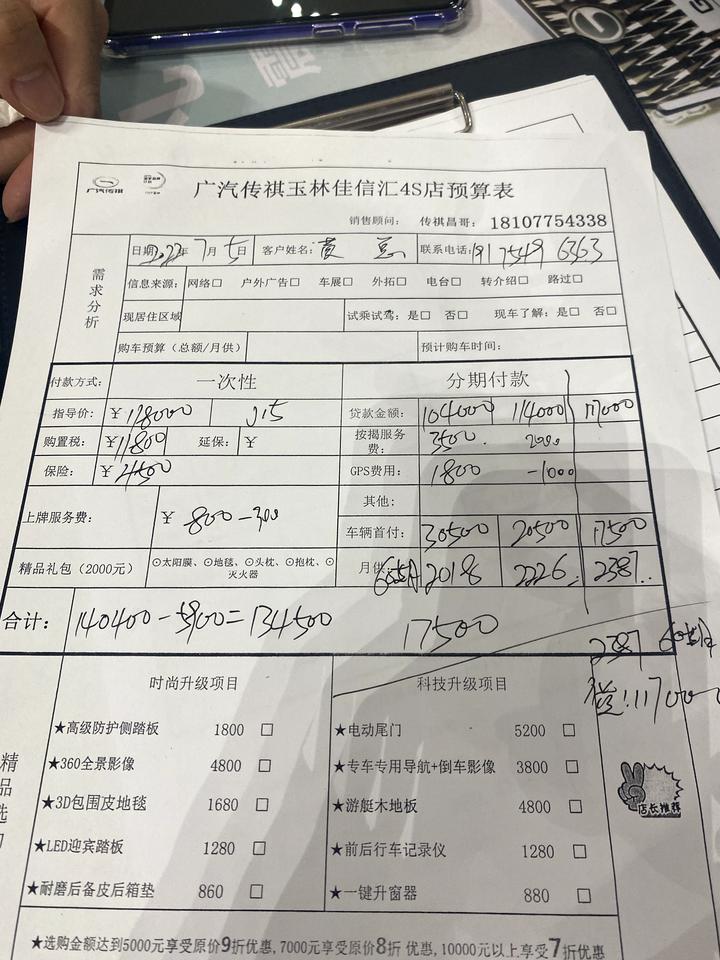 广汽传祺
广汽传祺玉林佳信汇4S店预算表
销售顾问: 传祺昌哥: 18107754338
需求分析
日期: 2022年 7月 5日 客户姓名: 黄 联系电话: 191 7549 6363
信息来源: 网络□ 户外广告□ 车展□ 外拓□ 电台□ 转介绍□ 路过□
现居住区域 试乘试驾: 是□ 否□ 现车了解: 是□ 否□
购车预算（总额/月供） 预计购车时间:
付款方式: 一次性 分期付款
指导价: ¥ 118000 J15 贷款金额: 104000 114000 117000
购置税: ¥11800 延保: ¥ 按揭服务费: 3500. 2000
保险: ¥ 4500 GPS费用: 1800 -1000
其他:
上牌服务费: ¥ 800-300 车辆首付: 30500 20500 17500
精品礼包（2000元） ⊙太阳膜、⊙地毯、⊙头枕、⊙抱枕、⊙灭火器 月供: 60期 2018 2226 2387
合计: 140400-5900=134500 17500
2387 60期
117000
时尚升级项目 科技升级项目
★高级防护侧踏板 1800 □ ★电动尾门 5200 □
★360全景影像 4800 □ ★专车专用导航+倒车影像 3800 □
★3D包围皮地毯 1680 □ ★游艇木地板 4800 □
店长推荐
★LED迎宾踏板 1280 □ ★前后行车记录仪 1280 □
★耐磨后备皮后箱垫 860 □ ★一键升窗器 880 □
精品选
★选购金额达到5000元享受原价9折优惠, 7000元享受原价8折 优惠, 10000元以上享受7折优惠